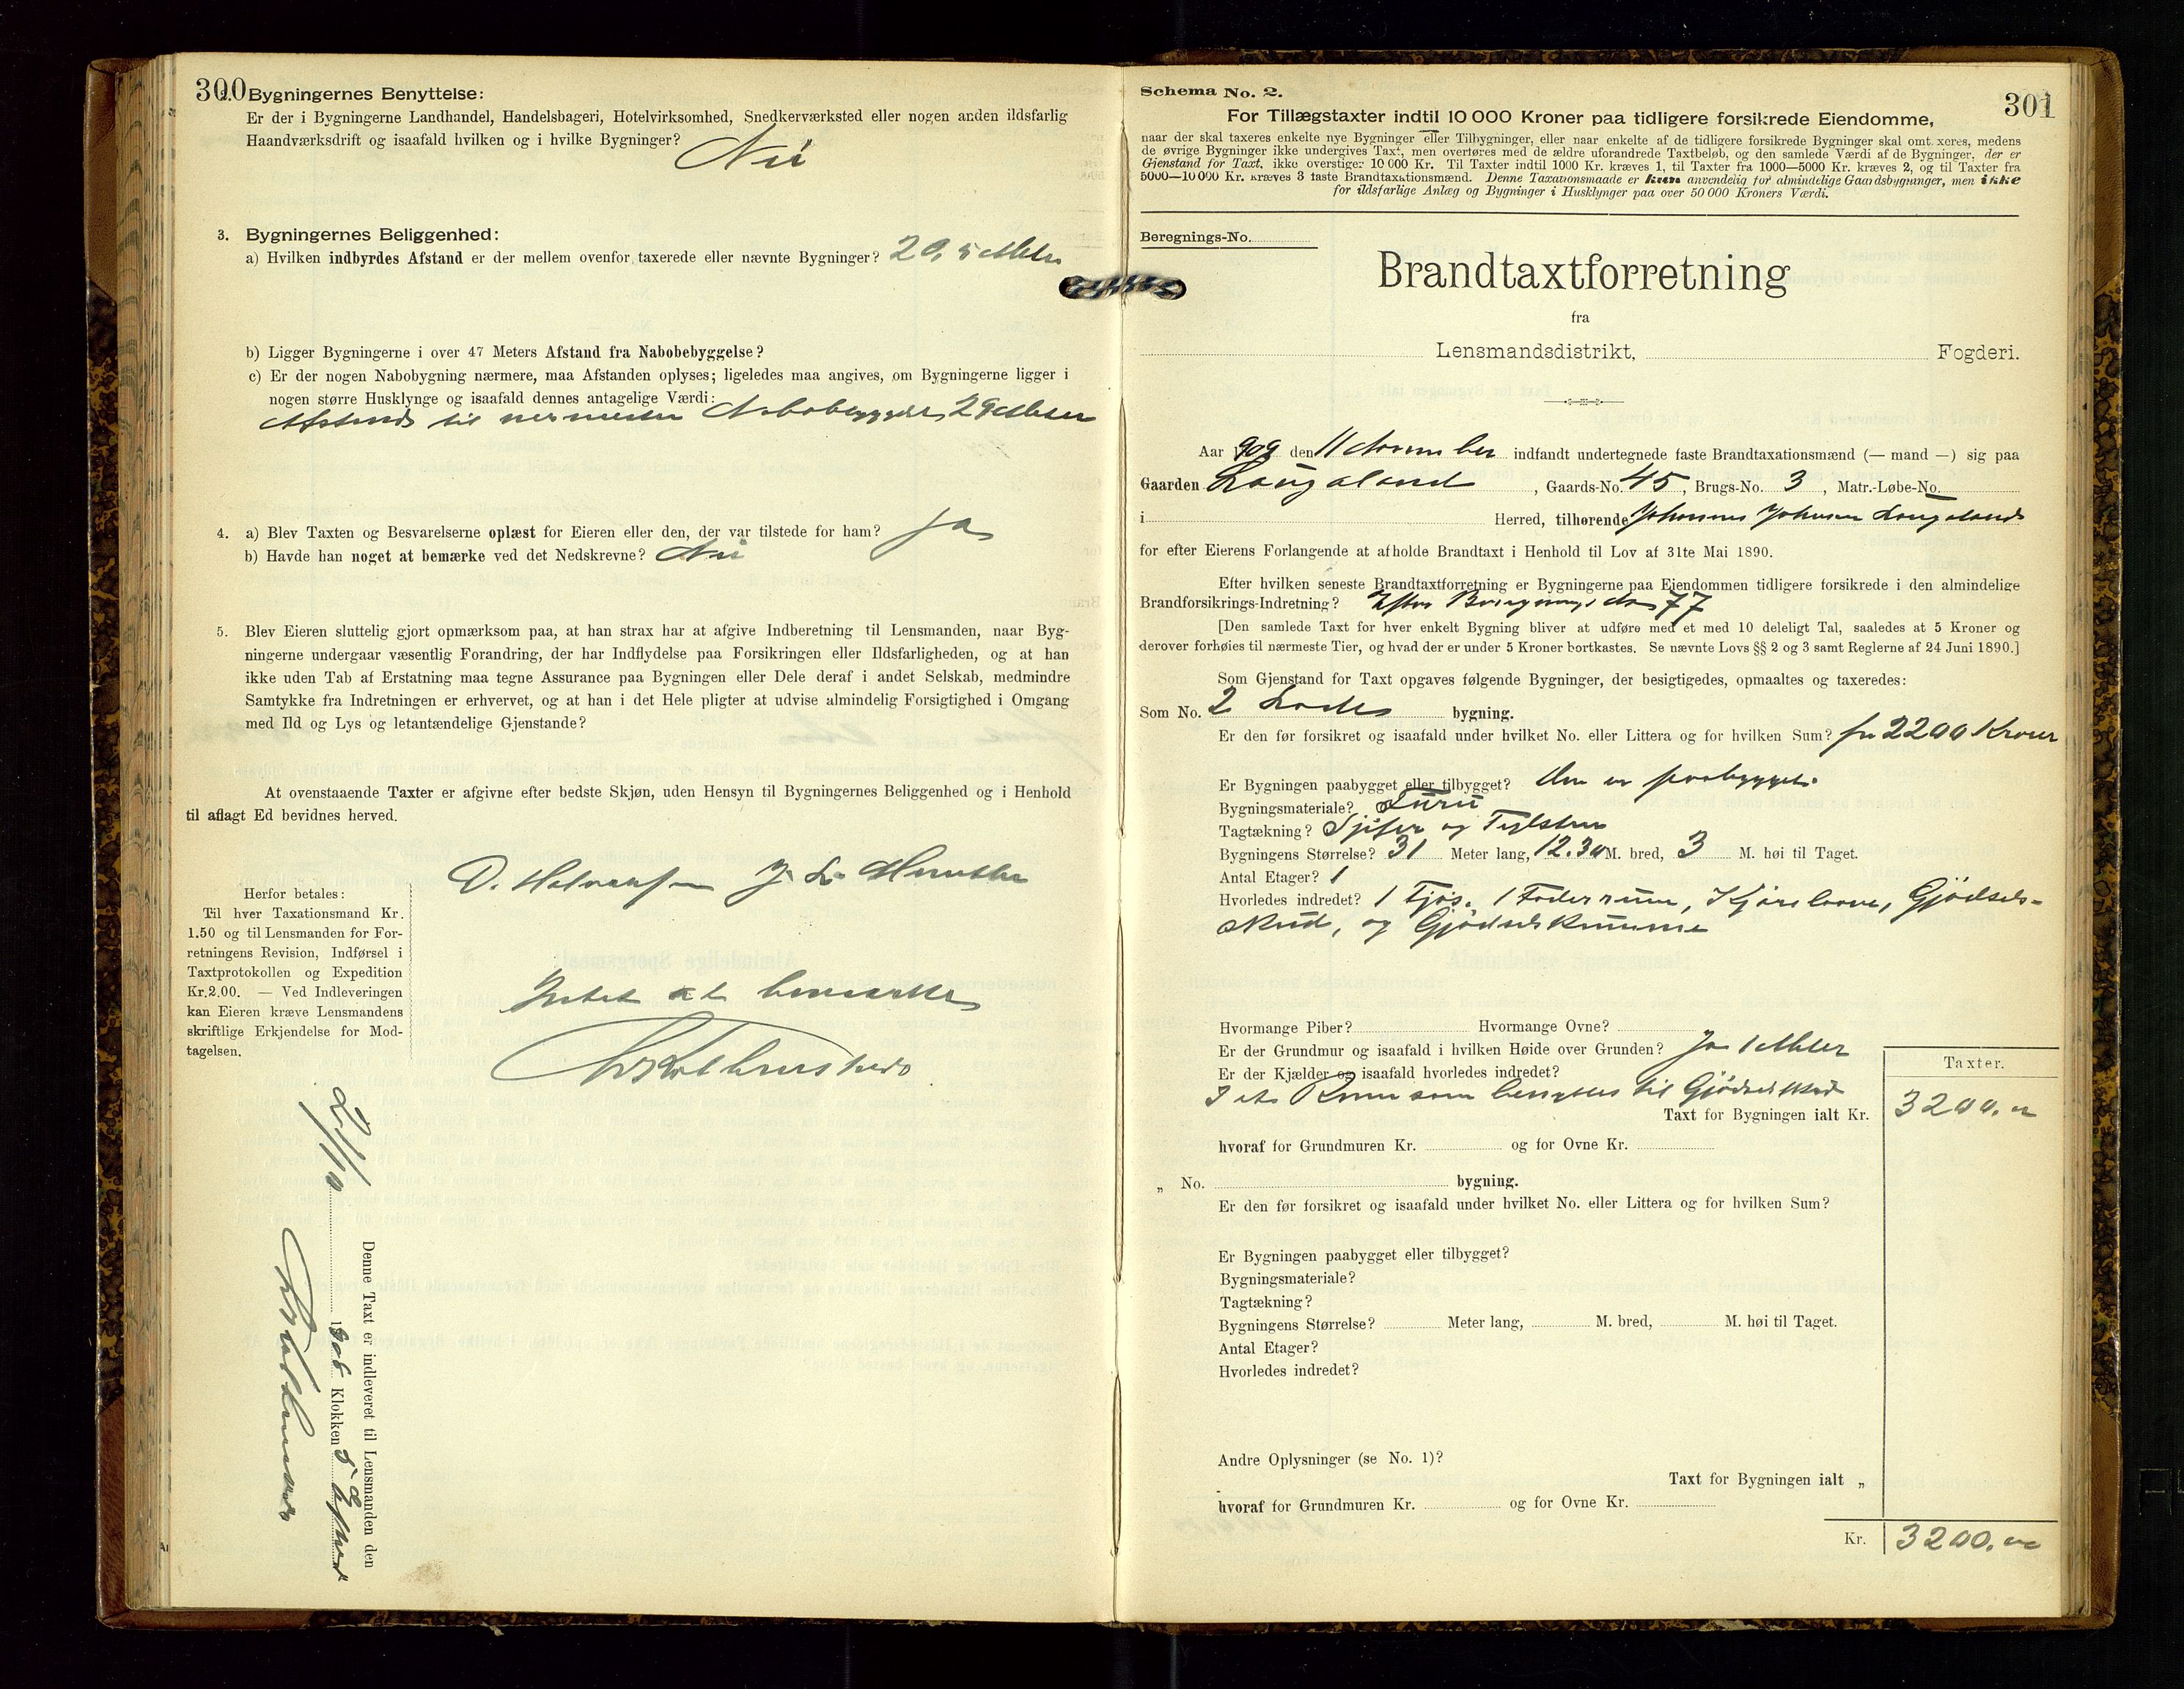 300
2. Bygningernes Benyttelse:
Er der i Bygningerne Landhandel, Handelsbageri, Hotelvirksomhed, Snedkerværksted eller nogen anden ildsfarlig
Haandværksdrift og isaafald hvilken og i hvilke Bygninger? Nei
3. Bygningernes Beliggenhed:
a) Hvilken indbyrdes Afstand er der mellem ovenfor taxerede eller nævnte Bygninger? 20,5 Meter
b) Ligger Bygningerne i over 47 Meters Afstand fra Nabobebyggelse?
c) Er der nogen Nabobygning nærmere, maa Afstanden oplyses; ligeledes maa angives, om Bygningerne ligger i
nogen større Husklynge og isaafald dennes antagelige Værdi:
Afstand til nermeste 29 Meter
4. a) Blev Taxten og Besvarelserne oplæst for Eieren eller den, der var tilstede for ham? Ja
b) Havde han noget at bemærke ved det Nedskrevne? Nei
5. Blev Eieren sluttelig gjort opmærksom paa, at han strax har at afgive Indberetning til Lensmanden, naar Byg-
ningerne undergaar væsentlig Forandring, der har Indflydelse paa Forsikringen eller Ildsfarligheden, og at han
ikke uden Tab af Erstatning maa tegne Assurance paa Bygningen eller Dele deraf i andet Selskab, medmindre
Samtykke fra Indretningen er erhvervet, og at han i det Hele pligter at udvise almindelig Forsigtighed i Omgang
med Ild og Lys og letantændelige Gjenstande?
At ovenstaaende Taxter er afgivne efter bedste Skjøn, uden Hensyn til Bygningernes Beliggenhed og i Henhold
til aflagt Ed bevidnes herved.
Herfor betales:
Til hver Taxationsmand Kr.
1.50 og til Lensmanden for For-
retningens Revision, Indførsel i
Taxtprotokollen og Expedition
Kr.2.00. — Ved Indleveringen
kan Eieren kræve Lensmandens
skriftlige Erkjendelse for Mod-
tagelsen.
Intet at bemærke
Denne Taxt er indleveret til Lensmanden den
Klokken 5
301
Schema No. 2.
For Tillægstaxter indtil 10 000 Kroner paa tidligere forsikrede Eiendomme,
naar der skal taxeres enkelte nye Bygninger eller Tilbygninger, eller naar enkelte af de tidligere forsikrede Bygninger skal omt.xeres, medens
de øvrige Bygninger ikke undergives Taxt, men overføres med de ældre uforandrede Taxtbeløb, og den samlede Værdi af de Bygninger, der er
Gjenstand for Taxt, ikke overstiger 10 000 Kr. Til Taxter indtil 1000 Kr. kræves 1, til Taxter fra 1000—5000 Kr. kræves 2, og til Taxter fra
5000—10 000 Kr. kræves 3 faste Brandtaxationsmænd. Denne Taxationsmaade er kun anvendelig for almindelige Gaardsbygninger, men ikke
for ildsfarlige Anlæg og Bygninger i Husklynger paa over 50 000 Kroners Værdi.
Beregnings-No.
Brandtaxtforretning
fra
Lensmandsdistrikt, Fogderi.
Aar 1909 den 11 November indfandt undertegnede faste Brandtaxationsmænd (— mand —) sig paa
Gaarden Laugaland, Gaards-No. 45, Brugs-No. 3, Matr.-Løbe-No.
i Herred, tilhørende Johannes Johnsen Laugaland
for efter Eierens Forlangende at afholde Brandtaxt i Henhold til Lov af 31te Mai 1890.
Efter hvilken seneste Brandtaxtforretning er Bygningerne paa Eiendommen tidligere forsikrede i den almindelige
Brandforsikrings-Indretning? Efter 77
[Den samlede Taxt for hver enkelt Bygning bliver at udføre med et med 10 deleligt Tal, saaledes at 5 Kroner og
derover forhøies til nærmeste Tier, og hvad der er under 5 Kroner bortkastes. Se nævnte Lovs §§ 2 og 3 samt Reglerne af 24 Juni 1890.]
Som Gjenstand for Taxt opgaves følgende Bygninger, der besigtigedes, opmaaltes og taxeredes:
Som No. 2 Lade bygning.
Er den før forsikret og isaafald under hvilket No. eller Littera og for hvilken Sum? for 2200 Kroner
Er Bygningen paabygget eller tilbygget? Den er paabygget
Bygningsmateriale? Furu
Tagtækning? Sjifer og Teglsten
Bygningens Størrelse? 31 Meter lang, 12.30 M. bred, 3 M. høi til Taget.
Antal Etager? 1
Hvorledes indredet? 1 Fjøs, 1 Foderrum, Kjørelaave, Gjødsels-
skud, og Gjødselskumme
Hvormange Piber? Hvormange Ovne?
Er der Grundmur og isaafald i hvilken Høide over Grunden? Ja 1 Meter
Er der Kjælder og isaafald hvorledes indredet?
I et Rum som benyttes til
Taxter.
Taxt for Bygningen ialt Kr. 3200.00
hvoraf for Grundmuren Kr. og for Ovne Kr.
„ No. bygning.
Er den før forsikret og isaafald under hvilket No. eller Littera og for hvilken Sum?
Er Bygningen paabygget eller tilbygget?
Bygningsmateriale?
Tagtækning?
Bygningens Størrelse? Meter lang, M. bred, M. høi til Taget.
Antal Etager?
Hvorledes indredet?
Andre Oplysninger (se No. 1)?
Taxt for Bygningen ialt „
hvoraf for Grundmuren Kr. og for Ovne Kr.
Kr. 3200.00